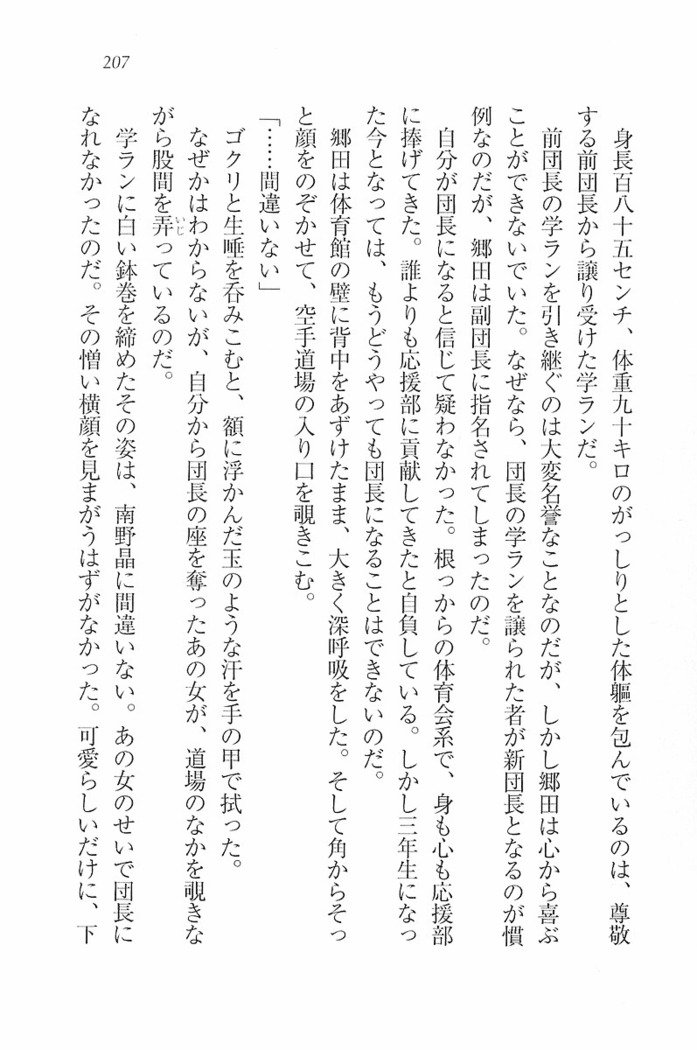 207
身長百八十五センチ、体重九十キロのがっしりとした体軀を包んでいるのは、尊敬
する前団長から譲り受けた学ランだ。
前団長の学ランを引き継ぐのは大変名誉なことなのだが、しかし郷田は心から喜ぶ
ことができないでいた。なぜなら、団長の学ランを譲られた者が新団長となるのが慣
例なのだが、郷田は副団長に指名されてしまったのだ。
自分が団長になると信じて疑わなかった。根っからの体育会系で、身も心も応援部
に捧げてきた。誰よりも応援部に貢献してきたと自負している。しかし三年生になっ
た今となっては、もうどうやっても団長になることはできないのだ。
郷田は体育館の壁に背中をあずけたまま、大きく深呼吸をした。そして角からそっ
と顔をのぞかせて、空手道場の入り口を覗きこむ。
「……間違いない」
ゴクリと生唾を呑みこむと、額に浮かんだ玉のような汗を手の甲で拭った。
なぜかはわからないが、自分から団長の座を奪ったあの女が、道場のなかを覗きな
がら股間を弄っているのだ。
学ランに白い鉢巻を締めたその姿は、南野晶に間違いない。あの女のせいで団長に
なれなかったのだ。その憎い横顔を見まがうはずがなかった。可愛らしいだけに、下